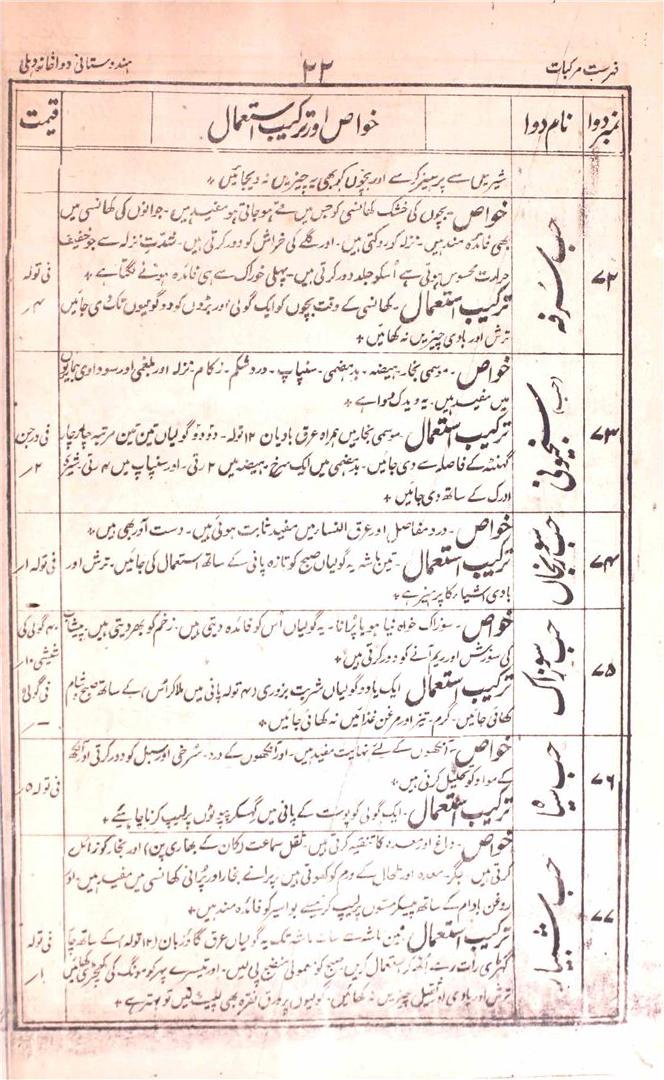 فہرست مرکبات ۲۲ ہندوستانی دواخانہ دہلی
نمبر دوا نام دوا خواص اور ترکیب استعمال قیمت
شیریں سے پرہیز کرے اور بچوں کو بھی یہ چیزیں نہ دیجائیں
۷۲ حب سُرفہ
خواص۔ بچوں کی خشک کھانسی کو جس میں قے ہو جاتی ہو مفید ہیں۔ جوانوں کی کھانسی میں
بھی فائدہ مند ہیں۔ نزلہ کو روکتی ہیں۔ اور گلے کی خراش کو دور کرتی ہیں۔ شدتِ نزلہ سے جو خفیف
حرارت محسوس ہوتی ہے اُسکو جلد دور کرتی ہیں۔ پہلی خوراک سے ہی فائدہ ہونے لگتا ہے
ترکیب استعمال۔ کھانسی کے وقت بچوں کو ایک گولی اور بڑوں کو دو گولیوں تک دی جائیں
ترش اور بادی چیزیں نہ کھائیں
فی تولہ
۴؍
۷۳ (حب) سنجیونی
خواص۔ موسمی بخار۔ ہیضہ۔ بدہضمی۔ سنپاپ۔ درد شکم۔ زکام نزلہ اور بلغمی اور سوداوی بیماریوں
میں مفید ہیں۔ یہ ویدک دوا ہے
ترکیب استعمال۔ موسمی بخار میں ہمراہ عرق بادیان ۱۲ تولہ۔ دو دو گولیاں تین تین مرتبہ چار چار
گھنٹہ کے فاصلہ سے دی جائیں۔ بدہضمی میں ایک سُرخ ہیضہ میں ۲ رتی۔ اور سنپاپ میں ۴ رتی شیرہ
ادرک کے ساتھ دی جائیں
فی درجن
۲؍
۷۴ حب سورنجان
خواص۔ درد مفاصل اور عرق النسا میں مفید ثابت ہوئی ہیں۔ دست آور بھی ہیں
ترکیب استعمال۔ تین ماشہ یہ گولیاں صبح کو تازہ پانی کے ساتھ استعمال کی جائیں۔ ترش اور
بادی اشیاء کا پرہیز ہے
فی تولہ ۱؍
۷۵ حب سوزاک
خواص۔ سوزاک خواہ نیا ہو یا پُرانا۔ یہ گولیاں اُس کو فائدہ دیتی ہیں۔ زخم کو بھر دیتی ہیں۔ پیشاب
کی سوزش اور ریم آنے کو دور کرتی ہیں
ترکیب استعمال۔ ایک یا دو گولیاں شربت بزوری (۴ تولہ پانی میں ملا کر اس) کے ساتھ صبح و شام
کھائی جائیں۔ گرم۔ تیز اور مرغن غذائیں نہ کھائی جائیں
گولی کی
شیشی
فی گولی
۷۶ حب سیاہ
خواص۔ آنکھوں کے لئے نہایت مفید ہیں۔ اور آنکھوں کے درد۔ سُرخی اور سبل کو دور کرتی اور آنکھ
کے مواد کو تحلیل کرتی ہیں
ترکیب استعمال۔ ایک گولی کو پوست کے پانی میں گھسکر پپوٹوں پر لیپ کرنا چاہئے
فی تولہ ۵؍
۷۷ حب شبیار
خواص۔ دماغ اور معدہ کا تنقیہ کرتی ہیں۔ ثقل سماعت (کان کے بھاری پن) اور بخار کو زائل
کرتی ہیں۔ جگر۔ معدہ اور طحال کے ورم کو کھوتی ہیں۔ پرانے بخار اور پُرانی کھانسی میں مفید ہیں۔ اور
روغن بادام کے ساتھ پیسکر مسّوں پر لیپ کرنیسے بواسیر کو فائدہ مند ہیں
ترکیب استعمال۔ تین ماشہ سے سات ماشہ تک یہ گولیاں عرق گاؤزبان (۱۲ تولہ) کے ساتھ چار
گھڑی رات رہے اُٹھ کر استعمال کریں صبح کو معمولی منضج پی لیں۔ اور تیسرے پہر کو مونگ کی کھچڑی کھائیں
ترش اور بادی اور ثقیل چیزیں نہ کھائیں۔ گولیوں پر ورق نقرہ بھی لپیٹ لیں تو بہتر ہے
فی تولہ
۱؍